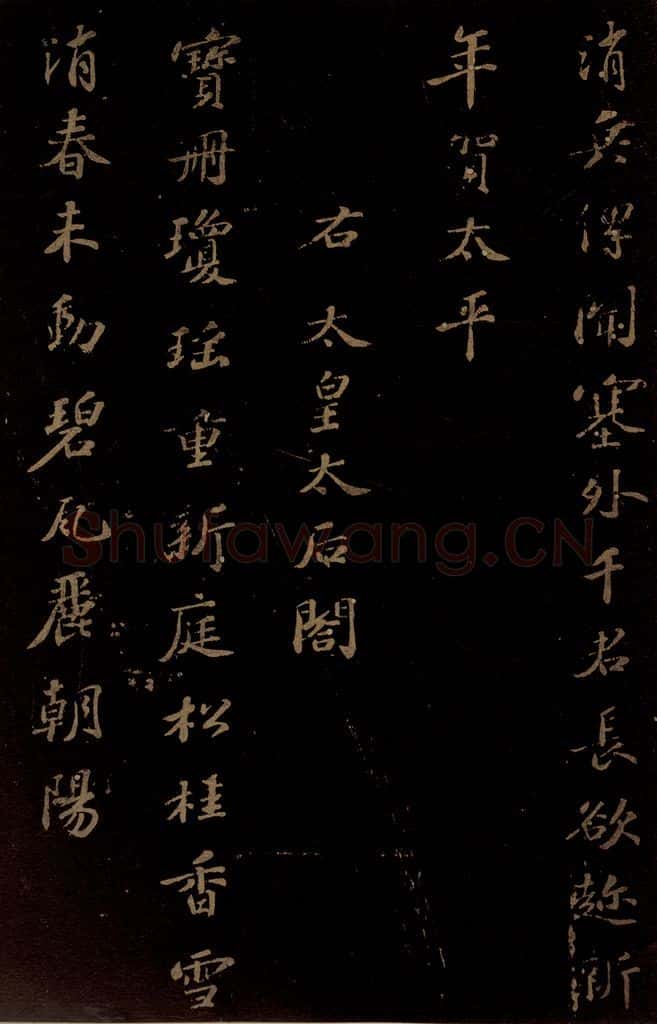 消兵傳聞塞外千君長欲趂新
年賀太平
右太皇太后閣
寶冊瓊瑤重新庭松桂香雪
消春未動碧瓦麗朝陽
Shufawang.CN